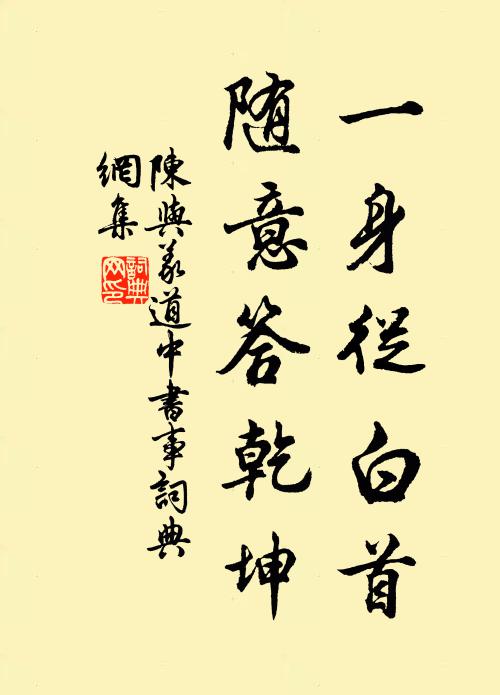 一身從白首
随意答乾坤
陳與義道中書事詞典
網集
詞典網印